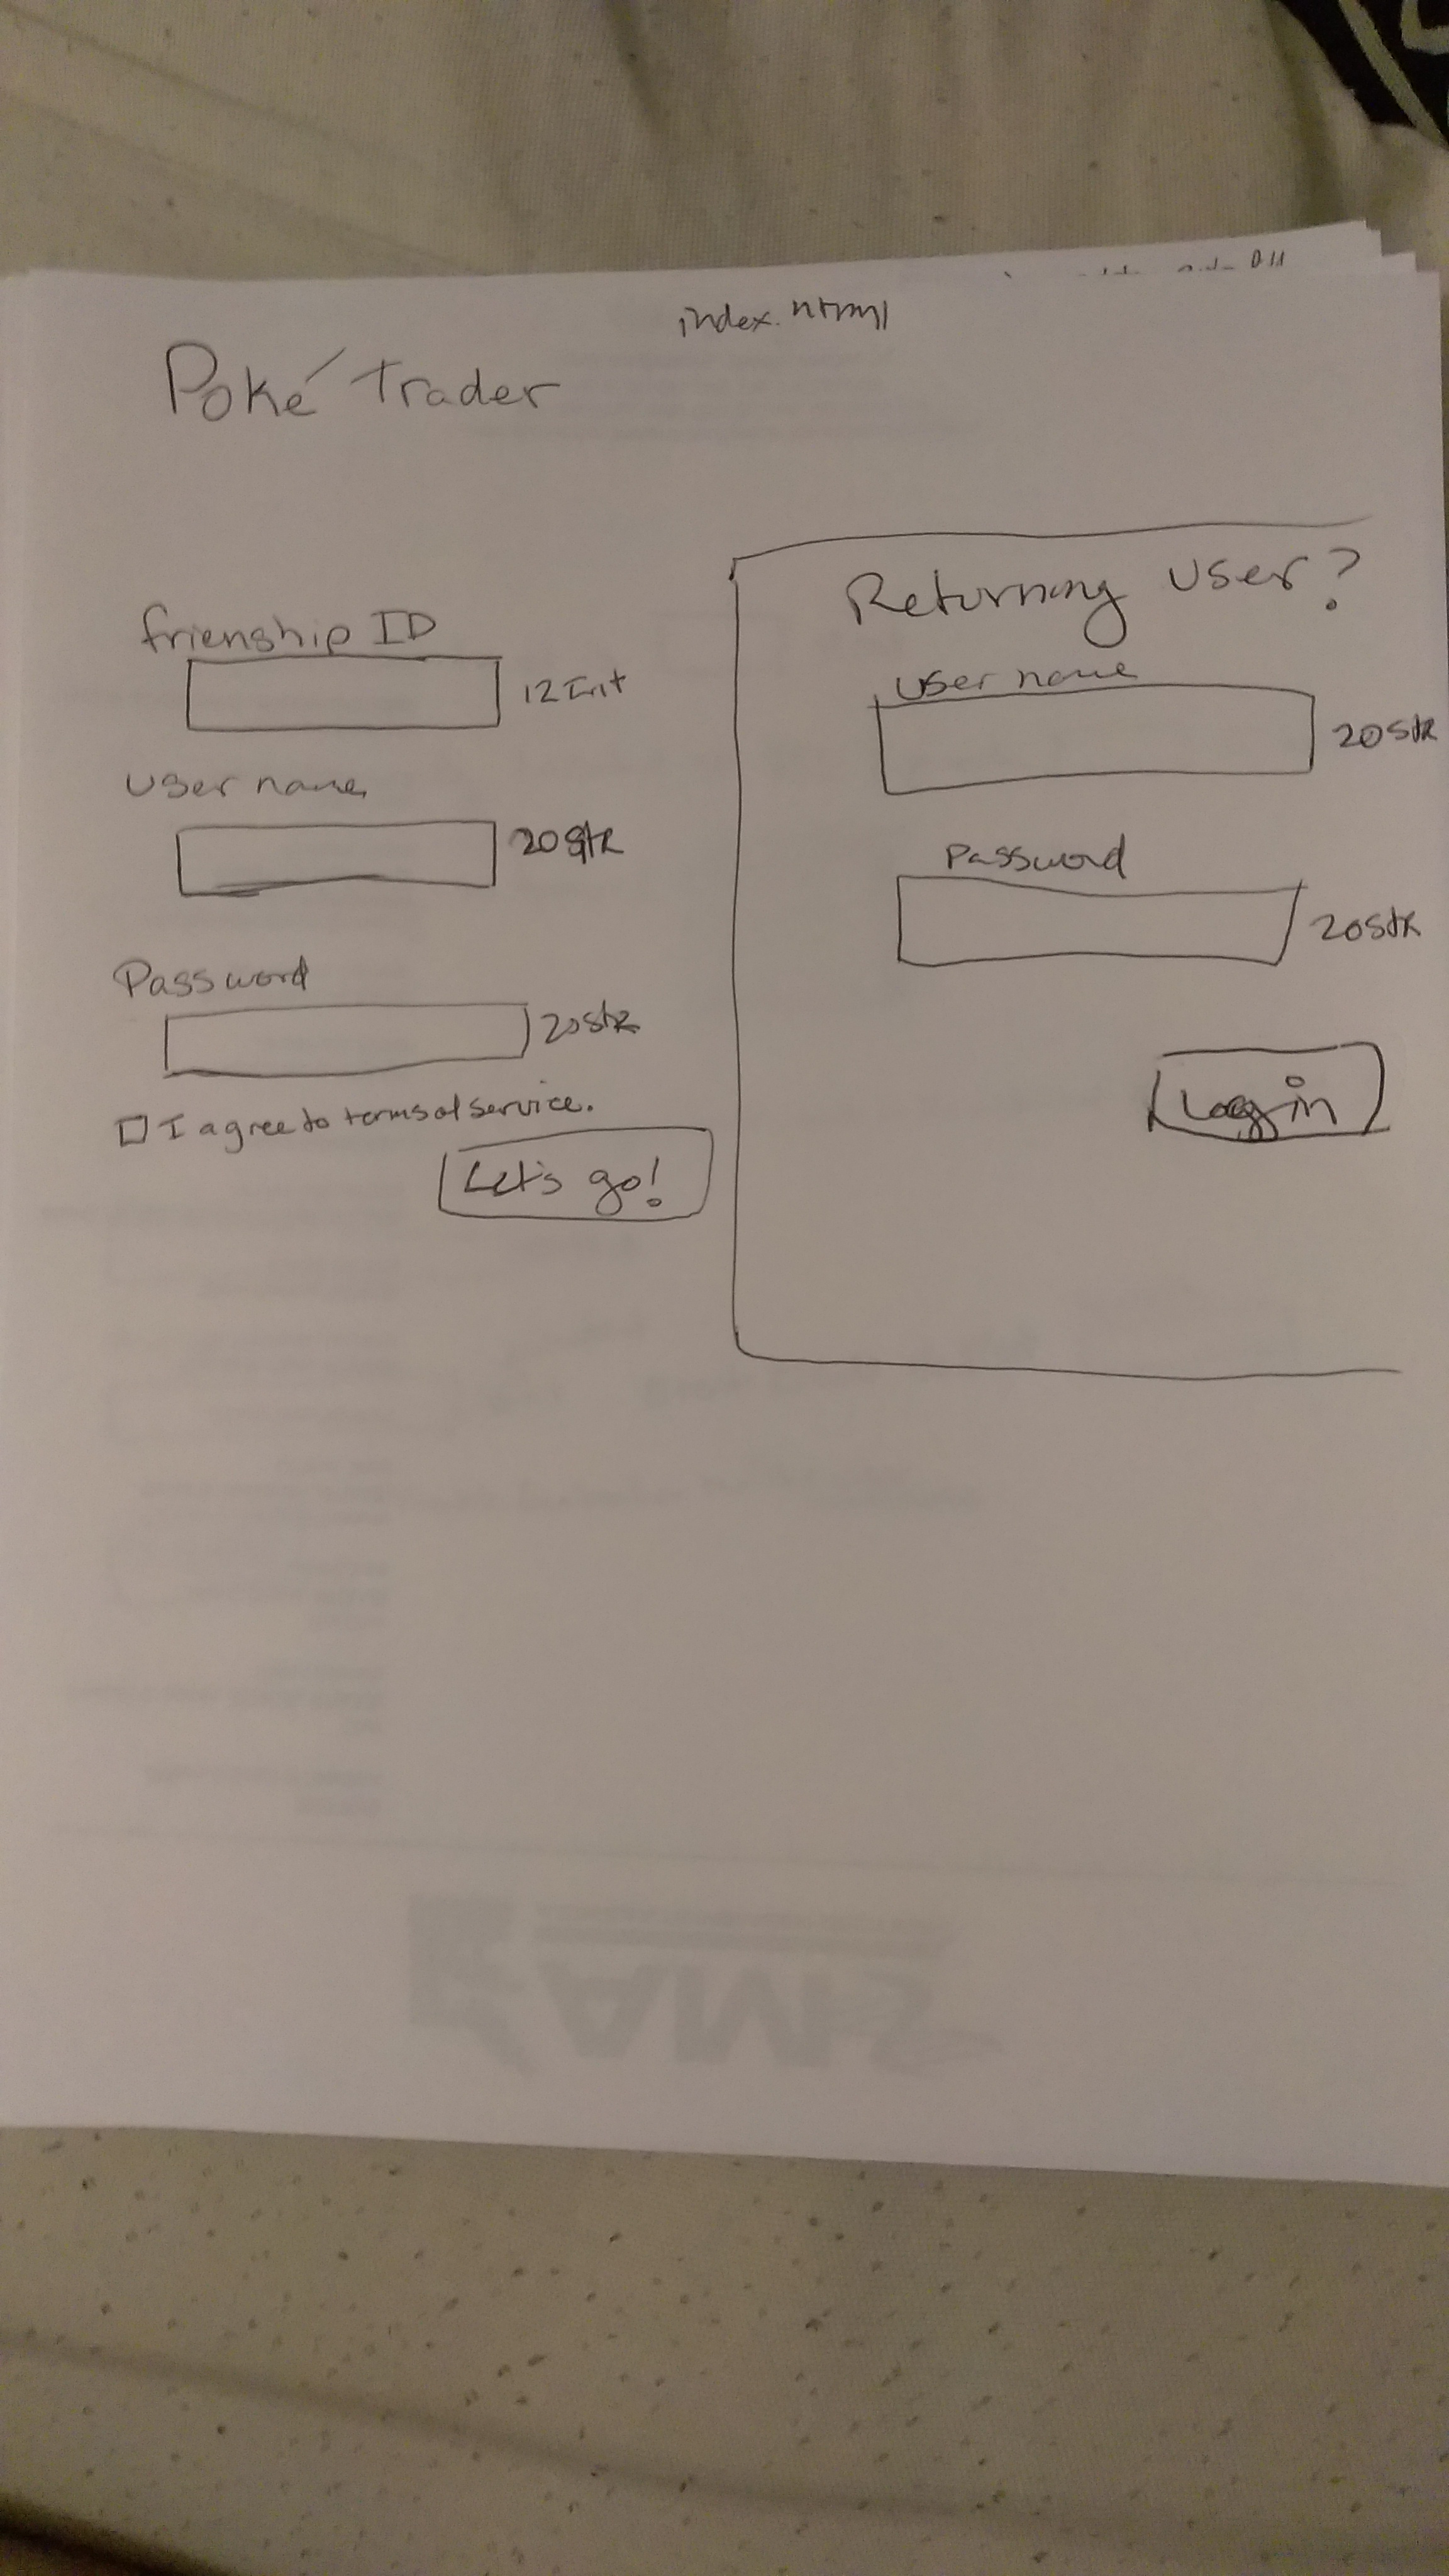 index.html
Poké Trader
frienship ID
12 Int
User name
20 Str
Password
20 Str
I agree to terms of service.
Let's go!
Returning User?
User name
20 Str
Password
20 Str
Log in
AMS